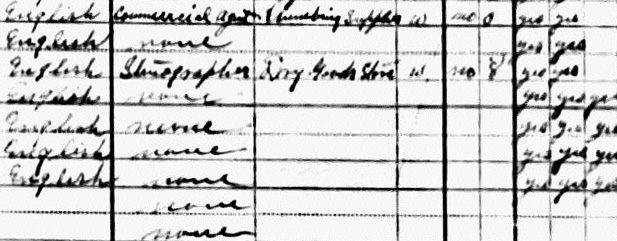 English Commercial Agent Plumbing Supplies w no 0 yes yes
English none yes yes
English Stenographer Dry Goods Store w. no yes yes
English none yes yes yes
English none yes yes yes
English none yes yes yes
English none yes yes yes
none
none